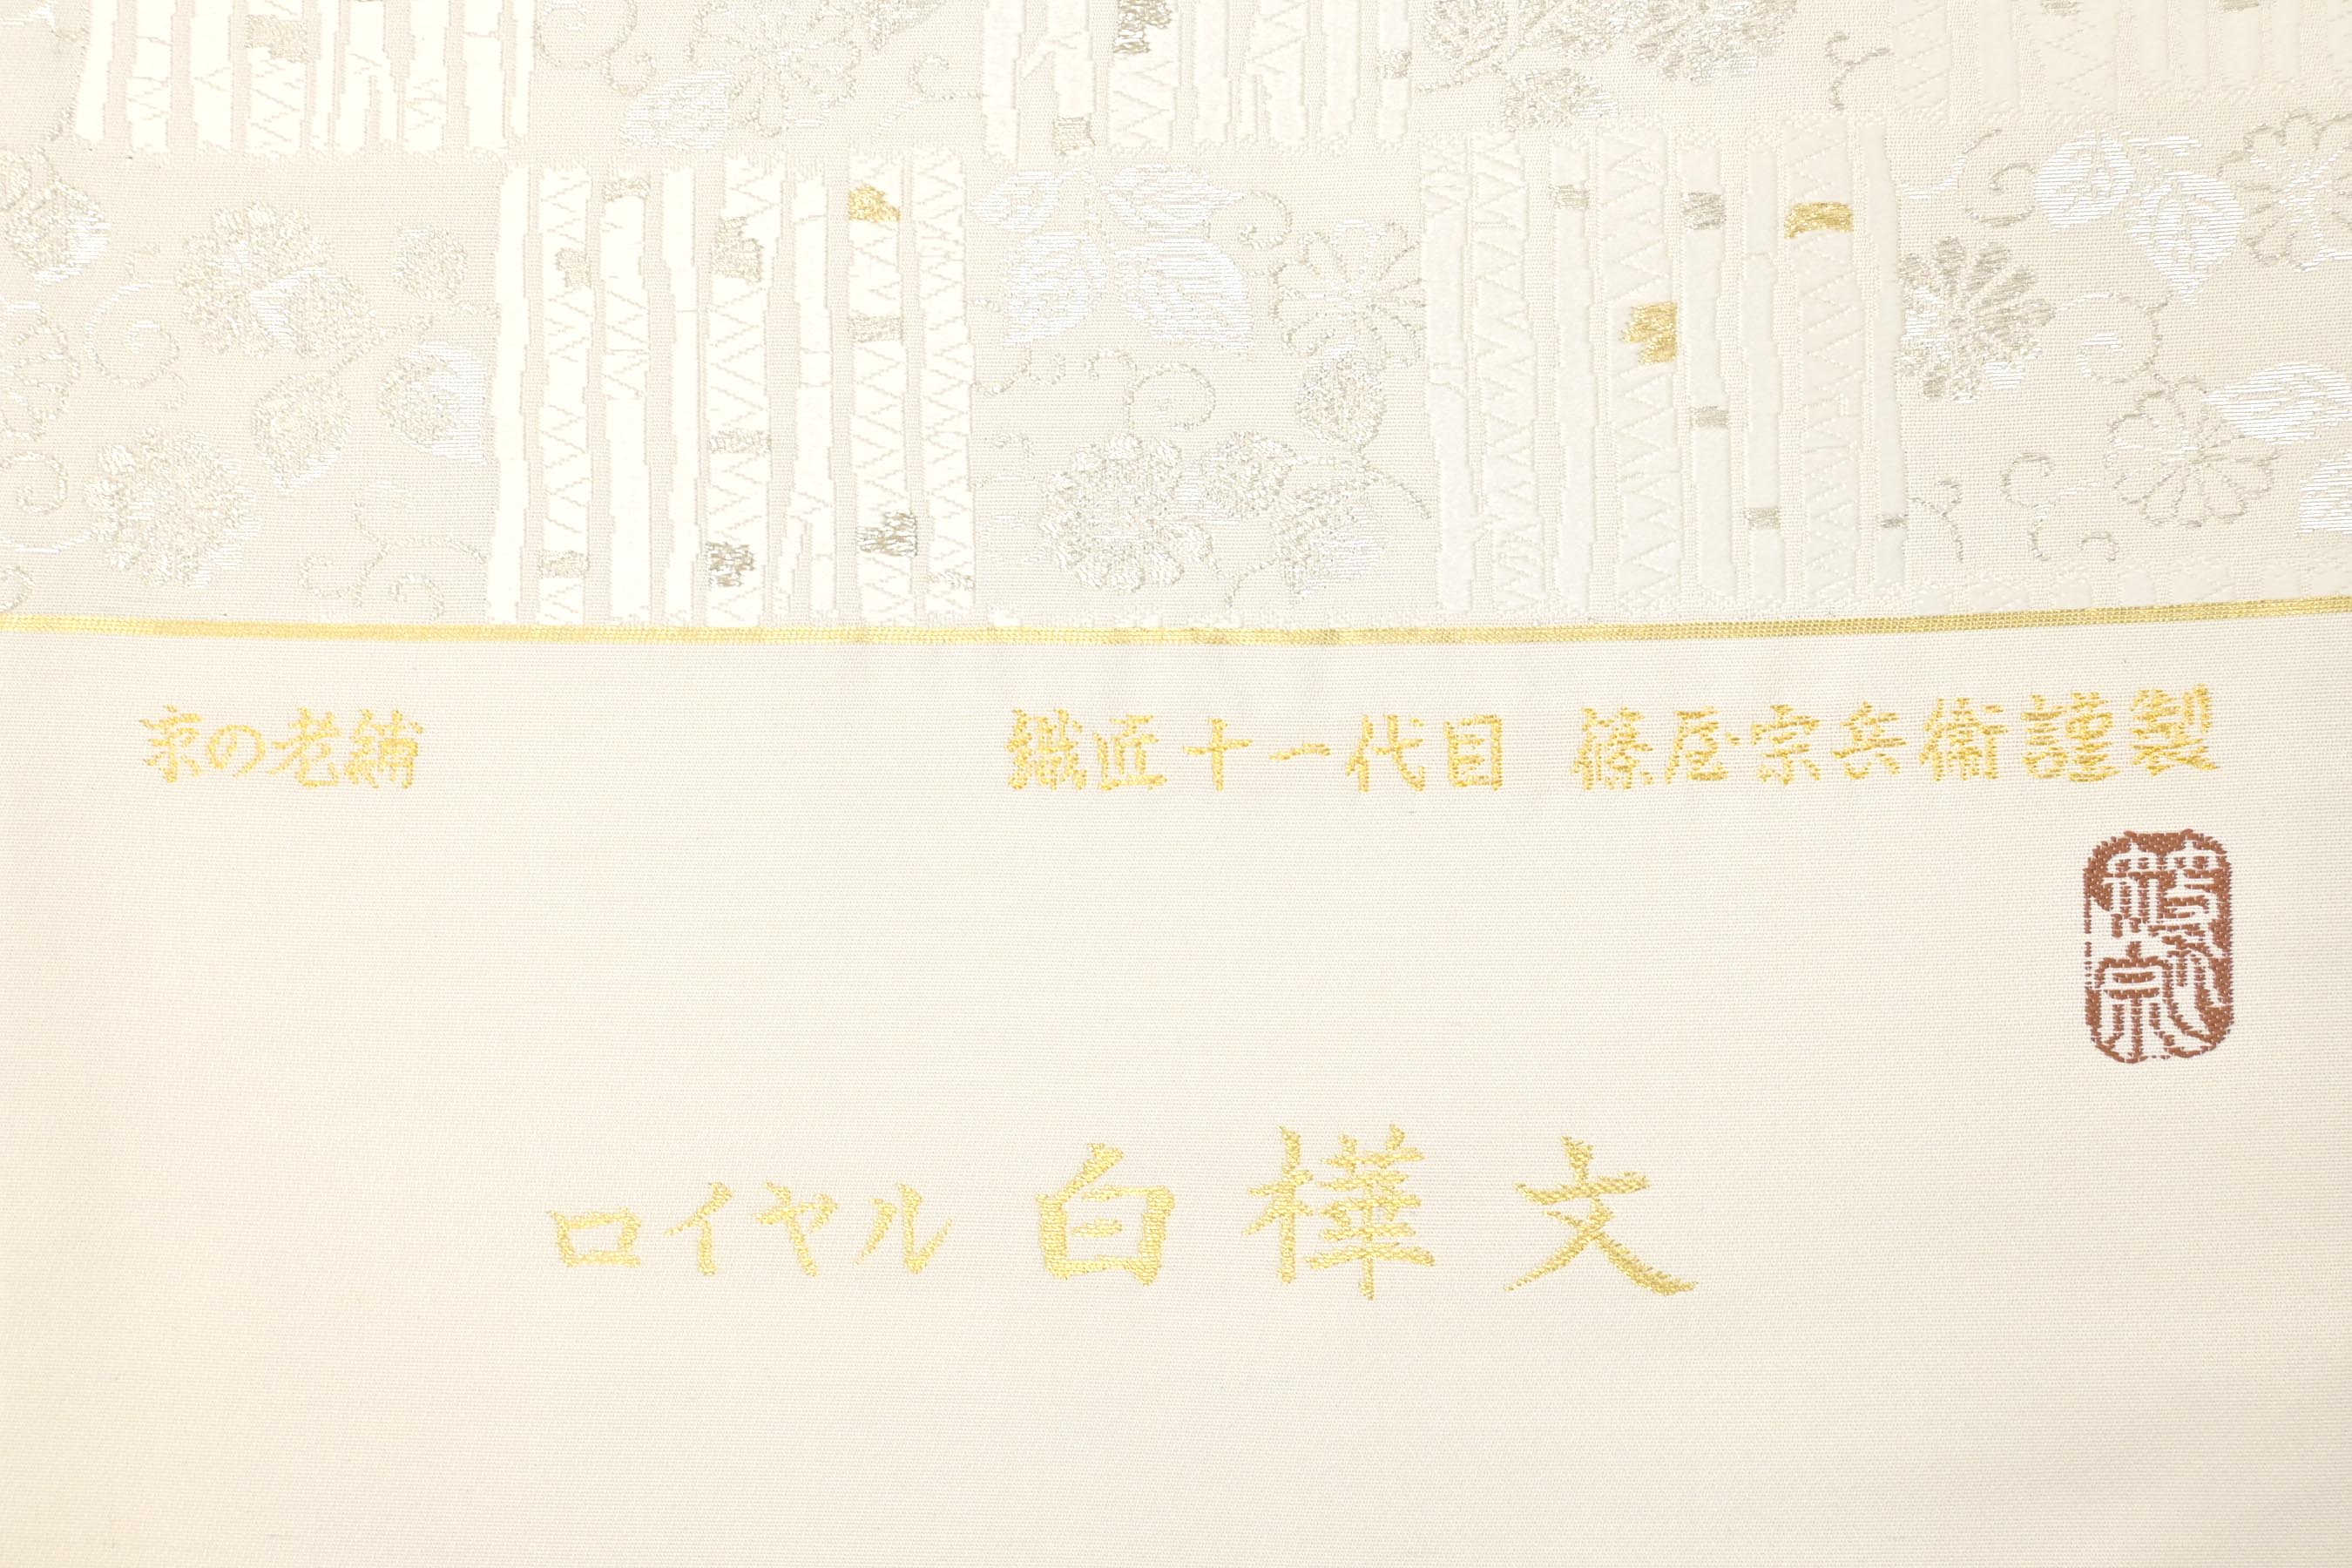 京の老舗　織匠十一代目　篠屋宗兵衛謹製
ロイヤル 白樺文